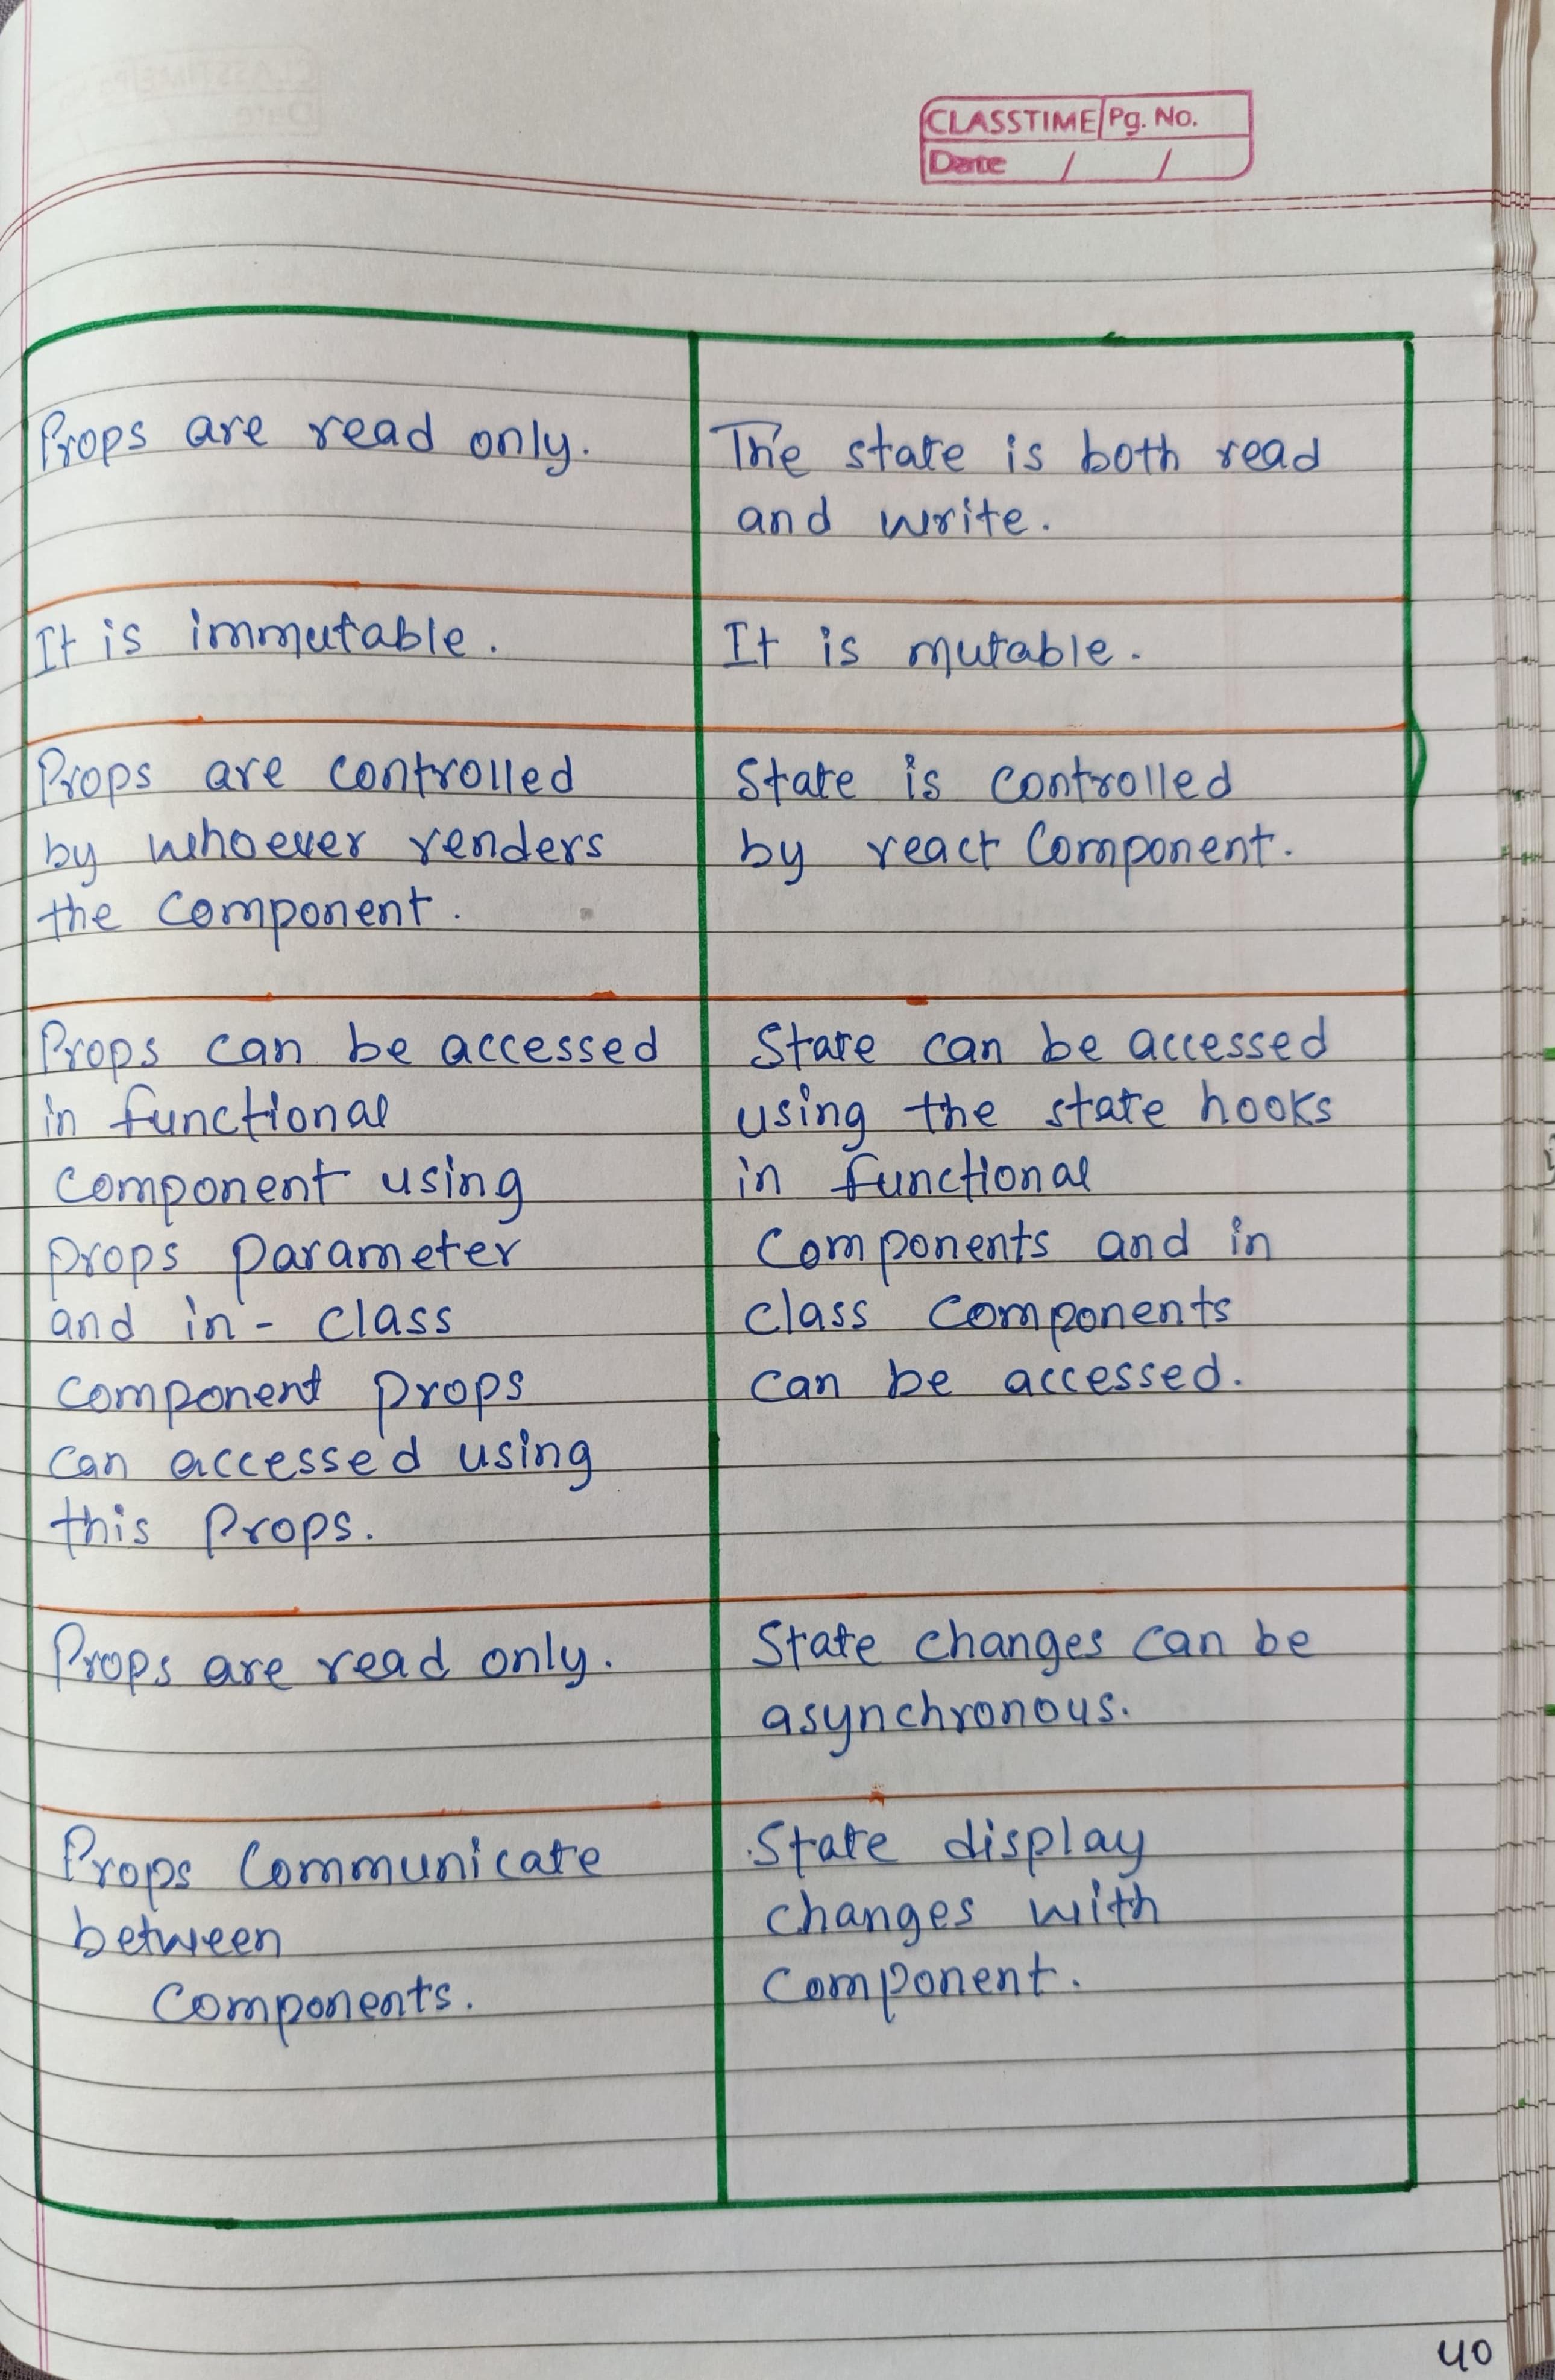 CLASSTIME Pg. No.
Date / /
Props are read only.
The state is both read
and write.
It is immutable.
It is mutable.
Props are controlled
by whoever renders
the component.
State is controlled
by react component.
Props can be accessed
in functional
component using
props parameter
and in- class
component props
can accessed using
this props.
State can be accessed
using the state hooks
in functional
components and in
class components
can be accessed.
Props are read only.
State changes can be
asynchronous.
Props communicate
between
components.
State display
changes with
component.
40